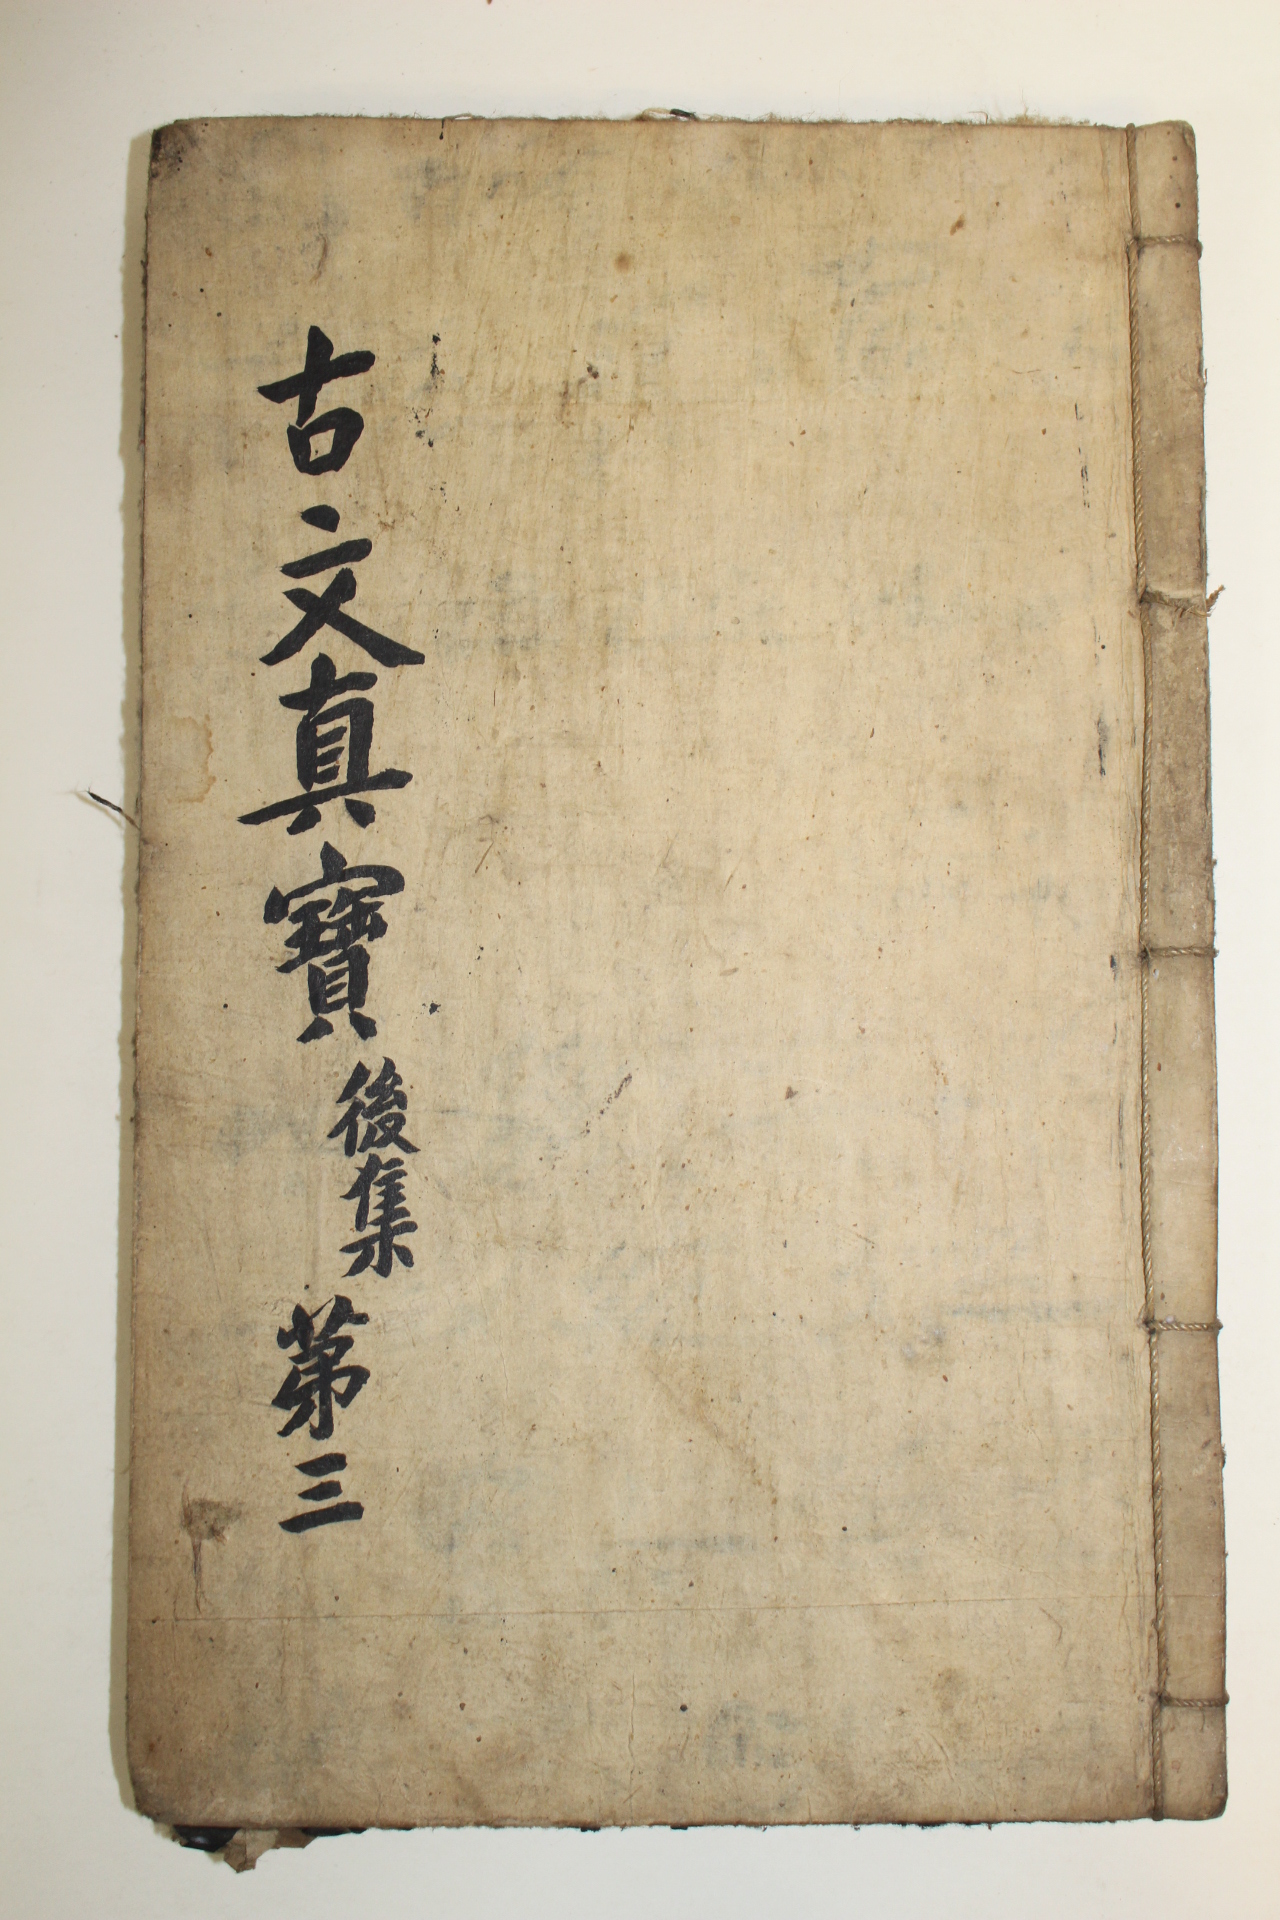 古文真寶後集 第三